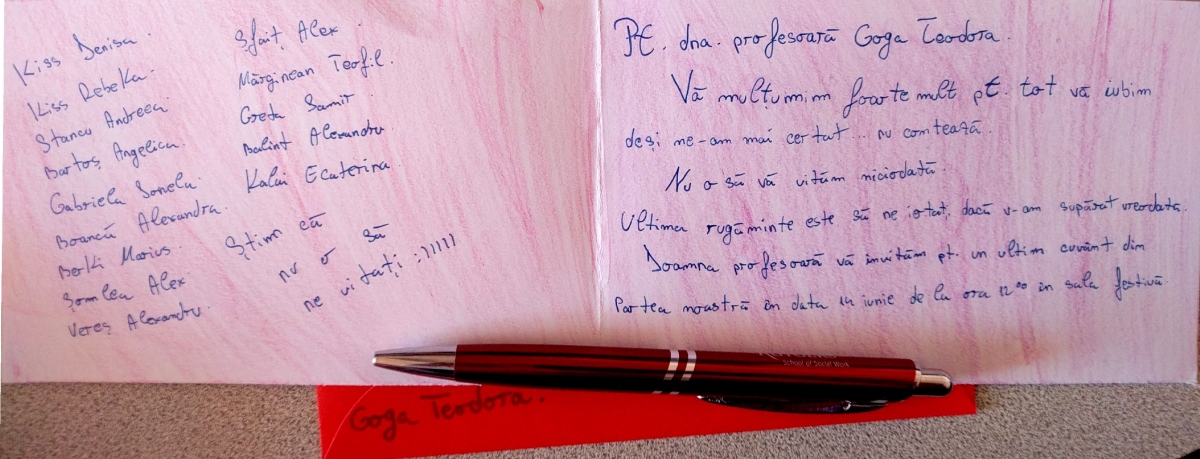 Kiss Denisa.
Kiss Rebeka.
Stancu Andreea
Bartoș Angelica.
Gabriela Ionela
Boancă Alexandra.
Berki Marius.
Șomlea Alex
Vereș Alexandru.
Șfaiț Alex
Mărginean Teofil.
Greta Samir
Balint Alexandru
Kalai Ecaterina.
Știm că
nu o să
ne uitați :)))))
Pt. dna. profesoară Goga Teodora.
Vă mulțumim foarte mult pt. tot vă iubim
deși ne-am mai certat... nu contează.
Nu o să vă uităm niciodată.
Ultima rugăminte este să ne iertat, dacă v-am supărat vreodată.
Doamna profesoară vă invităm pt. un ultim cuvânt din
Partea noastră în data 14 iunie de la ora 12⁰⁰ în sala festivă.
School of Social Work
Goga Teodora.